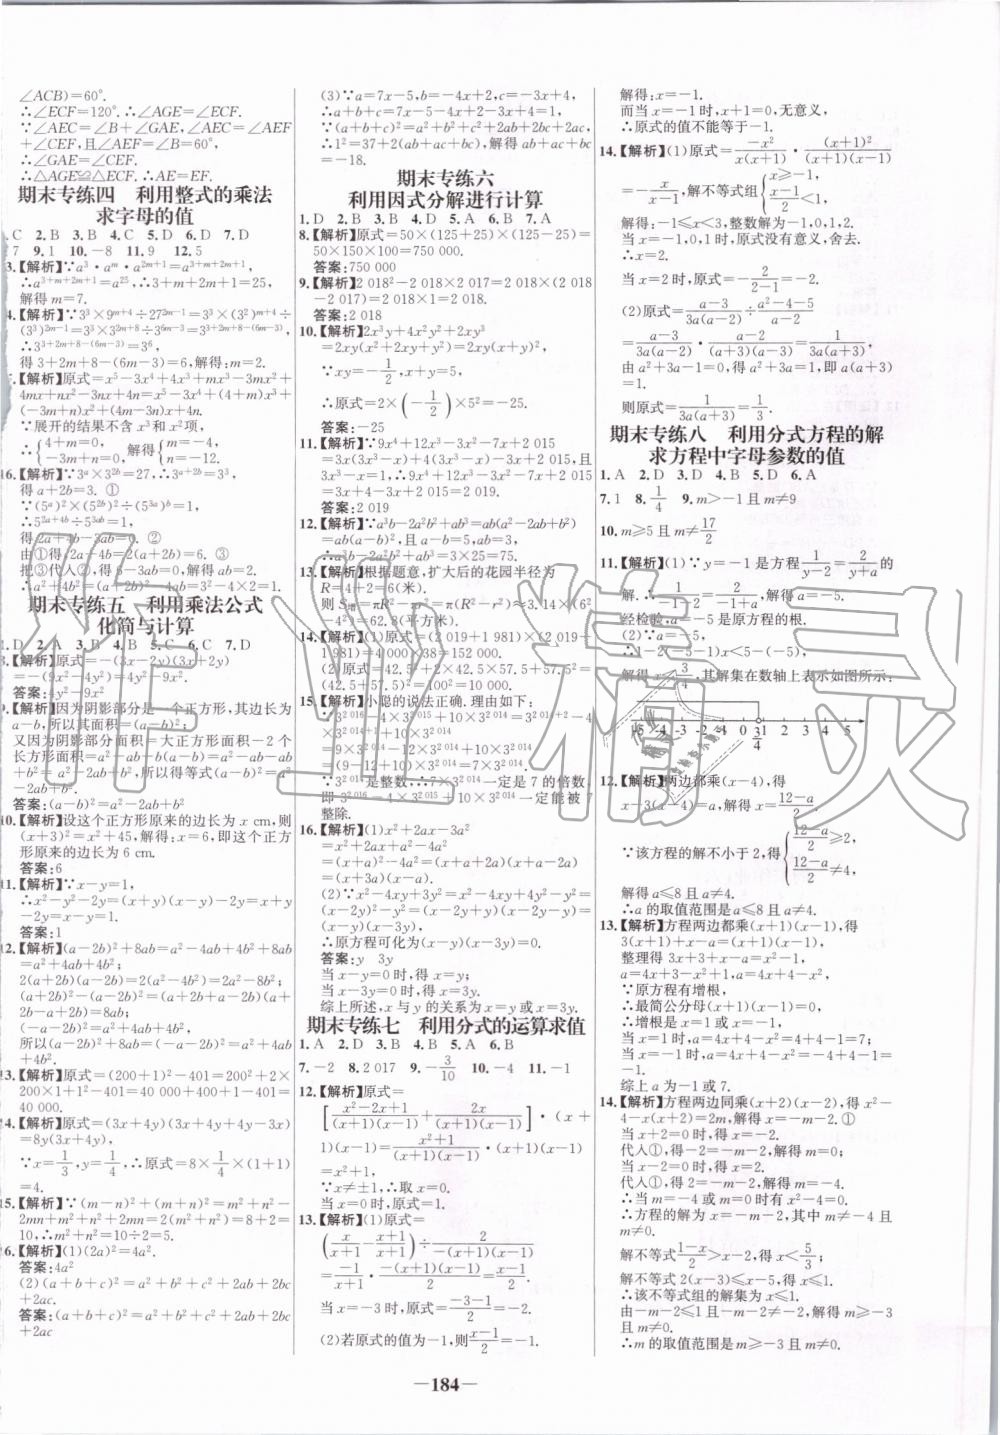 ∠ACB)=60°.
∴∠ECF=120°.∴∠AGE=∠ECF.
∵∠AEC=∠B+∠GAE,∠AEC=∠AEF
+∠CEF,且∠AEF=∠B=60°,
∴∠GAE=∠CEF.
∴△AGE≌△CEF.∴AE=EF.
期末专练四 利用整式的乘法
求字母的值
.C 2.B 3.B 4.C 5.D 6.D 7.D
7 9.1 10.-8 11.9 12.5
3.【解析】∵a³·aᵐ·a²ᵐ⁺¹=a³⁺ᵐ⁺²ᵐ⁺¹
∴a³⁺ᵐ⁺²ᵐ⁺¹=a²⁵,∴3+m+2m+1=25,
解得m=7.
4.【解析】∵3³×9ᵐ⁺⁴÷27²ᵐ⁻¹=3³×(3²)ᵐ⁺⁴÷
(3³)²ᵐ⁻¹=3³×3²ᵐ⁺⁸÷3⁶ᵐ⁻³=3³⁺²ᵐ⁺⁸⁻⁽⁶ᵐ⁻³⁾,
∴3³⁺²ᵐ⁺⁸⁻⁽⁶ᵐ⁻³⁾=3⁶,
得3+2m+8-(6m-3)=6,解得:m=2.
【解析】原式=x⁵-3x⁴+4x³+mx³-3mx²+
4mx+nx²-3nx+4n=x⁵-3x⁴+(4+m)x³+
(-3m+n)x²+(4m-3n)x+4n.
∵展开的结果不含x³和x²项,
∴{4+m=0, -3m+n=0, 解得{m=-4, n=-12.
16.【解析】∵3ᵃ×3²ᵇ=27,∴3ᵃ⁺²ᵇ=3³,
得a+2b=3. ①
∵(5ᵃ)²×(5²ᵇ)²÷(5³ᵃ)ᵇ=1,
∴5²ᵃ⁺⁴ᵇ÷5³ᵃᵇ=1.
得2a+4b-3ab=0. ②
由①得①得2a+4b=2(a+2b)=6. ③
把③代入②,得6-3ab=0,解得ab=2.
∴a²+4b²=(a+2b)²-4ab=3²-4×2=1.
期末专练五 利用乘法公式
化简与计算
1.D 2.A 3.B 4.B 5.C 6.C 7.D
8.【解析】原式=-(3x-2y)(3x+2y)
=-(9x²-4y²)=4y²-9x².
答案:4y²-9x²
9.【解析】因为阴影部分是一个正方形,其边长为
a-b,所以其面积=(a-b)².
又因为阴影部分面积=大正方形面积-2个
长方形面积=a²-b(a-b)-ab=a²-ab-ab
+b²=a²-2ab+b²,所以得等式(a-b)²=
a²-2ab+b².
答案:(a-b)²=a²-2ab+b²
10.【解析】设这个正方形原来的边长为x cm,则
(x+3)²=x²+45,解得:x=6,即这个正方
形原来的边长为6 cm.
答案:6
11.【解析】∵x-y=1,
∴x²-y²-2y=(x+y)(x-y)-2y=x+y
-2y=x-y=1.
答案:1
12.【解析】(a-2b)²+8ab=a²-4ab+4b²+8ab
=a²+4ab+4b²;
2(a+2b)(a-2b)=2(a²-4b²)=2a²-8b²;
(a+2b)²-(a-2b)²=(a+2b+a-2b)(a+
2b-a+2b)=8ab;
(-a-2b)²=a²+4ab+4b²,
所以(a-2b)²+8ab=(-a-2b)²=a²+4ab
+4b².
13.【解析】原式=(200+1)²-401=200²+2×
200×1+1²-401=40 000+400+1-401=
40 000.
14.【解析】原式=(3x+4y)(3x+4y-4y-3x)
=8y(3x+4y),
∵x=1/3,y=1/4,∴原式=8×1/4×(1+1)
=4.
15.【解析】∵(m-n)²+(m+n)²=m²+n²-
2mn+m²+n²+2mn=2(m²+n²)=8+2=
10,∴m²+n²=10÷2=5.
16.【解析】(1)(2a)²=4a².
答案:4a²
(2)(a+b+c)²=a²+b²+c²+2ab+2bc
+2ac.
答案:(a+b+c)²=a²+b²+c²+2ab+2bc
+2ac
(3)∵a=7x-5,b=-4x+2,c=-3x+4,
∴a+b+c=7x-5-4x+2-3x+4=1,
∵(a+b+c)²=a²+b²+c²+2ab+2bc+2ac,
∴1²=37+2(ab+ac+bc),解得ab+ac+bc=
-18.
期末专练六
利用因式分解进行计算
1.D 2.B 3.B 4.D 5.A 6.B 7.A
8.【解析】原式=50×(125+25)×(125-25)=
50×150×100=750 000.
答案:750 000
9.【解析】2 018²-2 018×2 017=2 018×(2 018
-2 017)=2 018×1=2 018.
答案:2 018
10.【解析】2x³y+4x²y²+2xy³
=2xy(x²+2xy+y²)=2xy(x+y)²,
∵xy=-1/2,x+y=5,
∴原式=2×(-1/2)×5²=-25.
答案:-25
11.【解析】9x⁴+12x³-3x²-7x+2 015
=3x(3x³-x-1)+4(3x³-x-1)+2 019,且
3x³-x=1,∴9x⁴+12x³-3x²-7x+2 015=
3x(1-1)+4(1-1)+2 019=2 019.
答案:2 019
12.【解析】∵a³b-2a²b²+ab³=ab(a²-2ab+b²)
=ab(a-b)²,且a-b=5,ab=3,
∴a³b-2a²b²+ab³=3×25=75.
13.【解析】根据题意,扩大后的花园半径为
R=4+2=6(米).
则S增=πR²-πr²=π(R²-r²)≈3.14×(6²
-4²)=62.8(平方米).
14.【解析】(1)原式=(2 019+1 981)×(2 019-
1 981)=4 000×38=152 000.
(2)原式=42.5²+2×42.5×57.5+57.5²=
(42.5+57.5)²=100²=10 000.
15.【解析】小聪的说法正确.理由如下:
∵3²⁰¹⁶-4×3²⁰¹⁵+10×3²⁰¹⁴
=9×3²⁰¹⁴-12×3²⁰¹⁴+10×3²⁰¹⁴
=(9-12+10)×3²⁰¹⁴=7×3²⁰¹⁴.
∵3²⁰¹⁴是整数,∴7×3²⁰¹⁴一定是7的倍数,
即3²⁰¹⁶-4×3²⁰¹⁵+10×3²⁰¹⁴一定能被7
整除.
16.【解析】(1)x²+2ax-3a²
=x²+2ax+a²-4a²
=(x+a)²-4a²=(x+a)²-(2a)²
=(x+3a)(x-a).
(2)∵x²-4xy+3y²=x²-4xy+4y²-y²=
(x-2y)²-y²=(x-2y+y)(x-2y-y)=
(x-y)(x-3y),
∴原方程可化为(x-y)(x-3y)=0.
答案:y 3y
当x-y=0时,得x=y.
当x-3y=0时,得x=3y.
综上所述,x与y的关系为x=y或x=3y.
期末专练七 利用分式的运算求值
1.A 2.D 3.B 4.B 5.A 6.B
7.-2 8.2 017 9.-3/10 10.-4 11.-1
12.【解析】原式=
[(x²-2x+1)/((x+1)(x-1))+2x/((x+1)(x-1))]·(x+
1)(x-1)=(x²+1)/((x+1)(x-1))·(x+1)(x-1)
=x²+1,
∵x≠±1,∴取x=0.
当x=0时,原式=1.
13.【解析】(1)原式=
(x/(x+1)-(x+1)/(x+1))÷2/(-(x+1)(x-1))=
-1/(x+1)·(-(x+1)(x-1))/2=(x-1)/2.
当x=-3时,原式=(-3-1)/2=-2.
(2)若原式的值为-1,则(x-1)/2=-1.
解得:x=-1.
而当x=-1时,x+1=0,无意义,
∴原式的值不能等于-1.
14.【解析】(1)原式=-x²/(x(x+1))·(x+1)²/((x+1)(x-1))
=-x/(x-1),解不等式组
解得:-1≤x<3,整数解为-1,0,1,2.
当x=-1,0,1时,原式没有意义,舍去.
∴x=2.
当x=2时,原式=-2/(2-1)=-2.
(2)原式=(a-3)/(3a(a-2))÷(a²-4-5)/(a-2)
=(a-3)/(3a(a-2))·(a-2)/((a+3)(a-3))=1/(3a(a+3)).
∵a满足a²+3a-1=0,得a²+3a=1,即a(a+3)
=1.
则原式=1/(3a(a+3))=1/3.
期末专练八 利用分式方程的解
求方程中字母参数的值
1.A 2.D 3.D 4.B 5.D 6.A
7.1 8.1/4 9.m>-1且m≠9
10.m≥5且m≠17/2
11.【解析】(1)∵y=-1是方程1/(y-2)=2/(y+a)的
解.∴1/(-1-2)=2/(-1+a),解得a=-5.
经检验,a=-5是原方程的根.
(2)∵a=-5,
∴1-2(-5-1)x<5-(-5),
解得x<3/4,其解集在数轴上表示如图所示:
-5 -4 -3 -2 -1 0 3/4 1 2 3 4 5
12.【解析】两边都乘(x-4),得
x-3(x-4)=a,解得x=(12-a)/2,
∵该方程的解不小于2,得{(12-a)/2≥2, (12-a)/2≠4.
解得a≤8且a≠4.
∴a的取值范围是a≤8且a≠4.
13.【解析】方程两边都乘(x+1)(x-1),得
3(x+1)+x(x-1)=x(x+1)-a(x-1),
整理得3x+3+x²-x=x²+x-a,
a=4x-3+x²-x²=4x-3,
∵原方程有增根,
∴最简公分母(x+1)(x-1)=0,
∴增根是x=1或x=-1,
当x=1时,a=4x+4-x²=4+4-1=7;
当x=-1时,a=4x+4-x²=-4+4-1=
-1.
综上a为-1或7.
14.【解析】方程两边同乘(x+2)(x-2),得x²-
4-x(x+2)=2m,解得x=-m-2.①
当x+2=0时,得x=-2.
代入①,得-2=-m-2,解得m=0;
当x-2=0时,得x=2.
代入①,得2=-m-2,解得m=-4.
∴当m=-4或m=0时,原方程无解,
∴方程的解为x=-m-2,其中m≠-4且
m≠0.
解不等式(1-x)/2>x-2,得x<5/3;
解不等式2(x-3)≤x-5,得x≤1.
∴该不等式组的解集为x≤1.
由-m-2≤1且-m-2≠-2,解得m≥-3
且m≠0.
∴m的取值范围是m≥-3且m≠0.
—184—